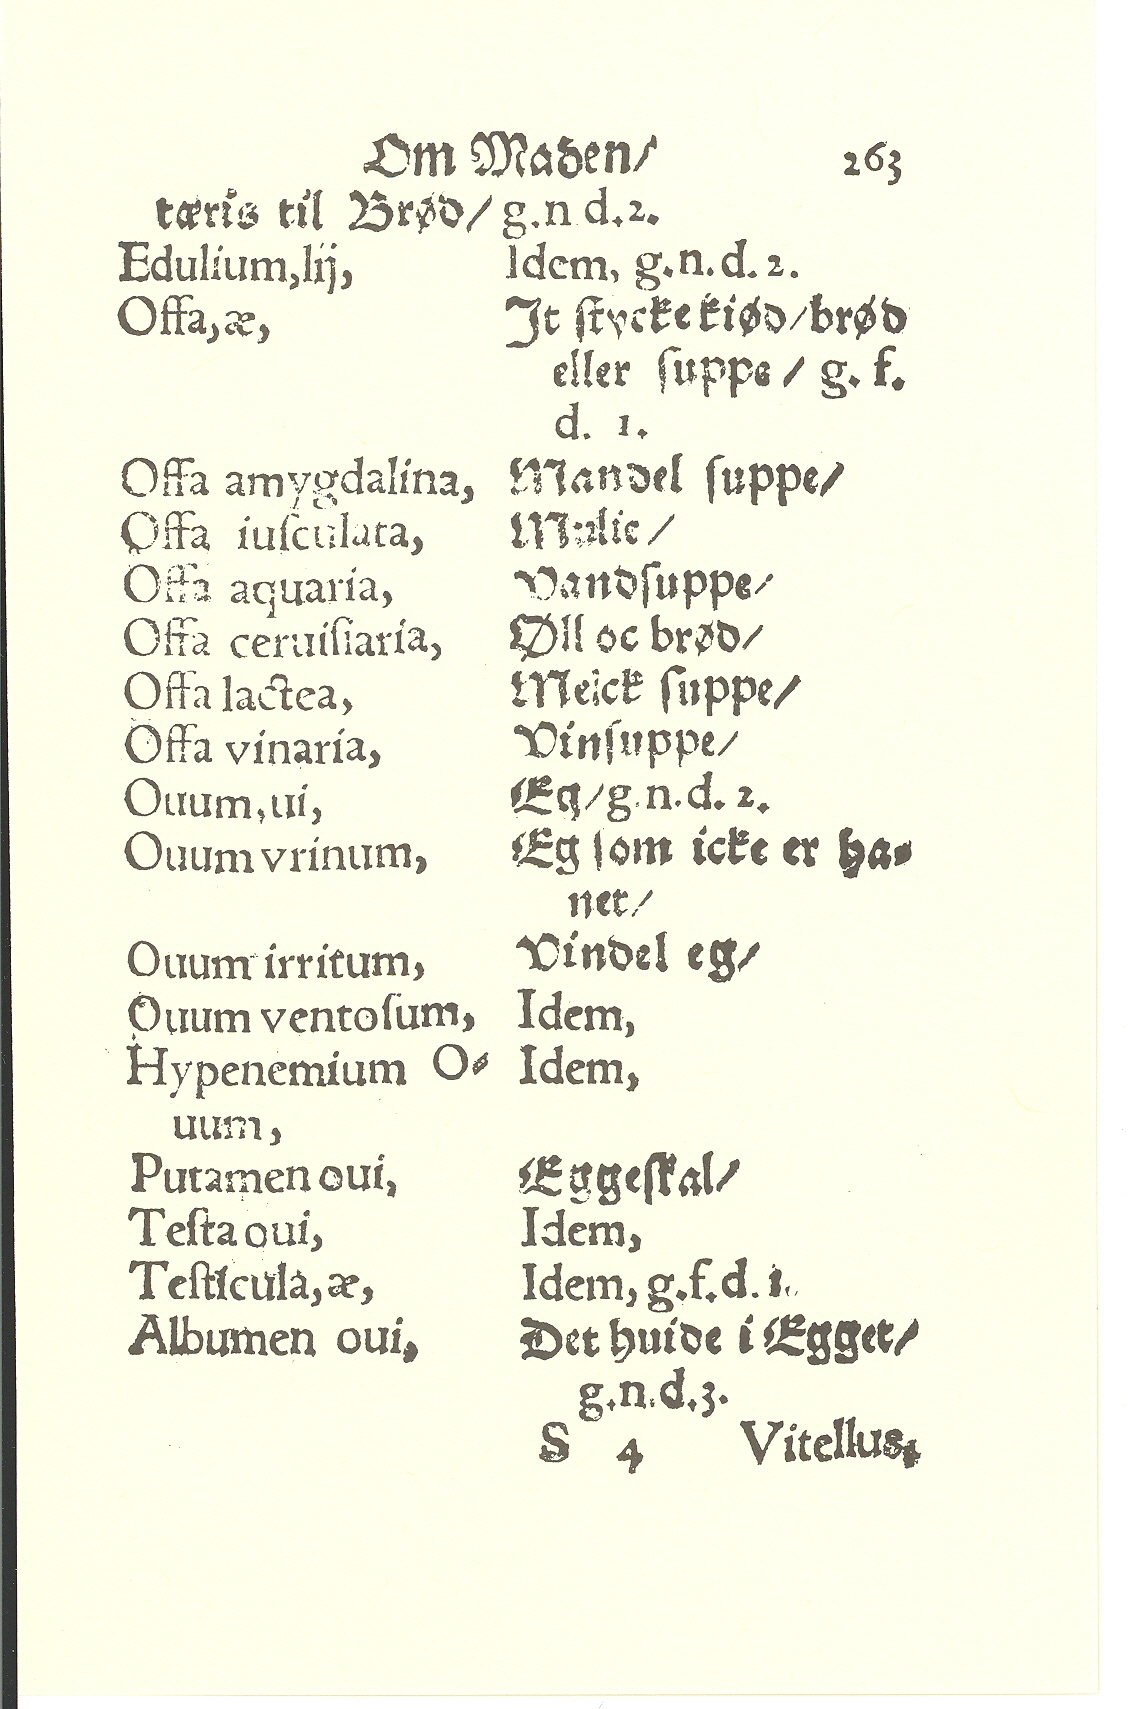 Om Maden/ 263
tæris til Brød/ g.n d.2.
Edulium,lij, Idem, g.n.d.2.
Offa,æ, Jt ſtycke kiød/brød
eller ſuppe/ g. f.
d. 1.
Offa amygdalina, Mandel ſuppe/
Offa iuſculata,
Offa aquaria, Vandſuppe/
Offa ceruiſiaria, Øll oc brød/
Offa lactea, Melck ſuppe/
Offa vinaria, Vinſuppe/
Ouum,ui, Eg/g.n.d.2.
Ouum vrinum, Eg ſom icke er ha-
net/
Ouum irritum, Vindel eg/
Ouum ventoſum, Idem,
Hypenemium O- Idem,
uum,
Putamen oui, Eggeſkal/
Teſta oui, Idem,
Teſticula,æ, Idem, g.f.d.1.
Albumen oui, Det huide i Egget/
g.n.d.3.
S 4 Vitellus,